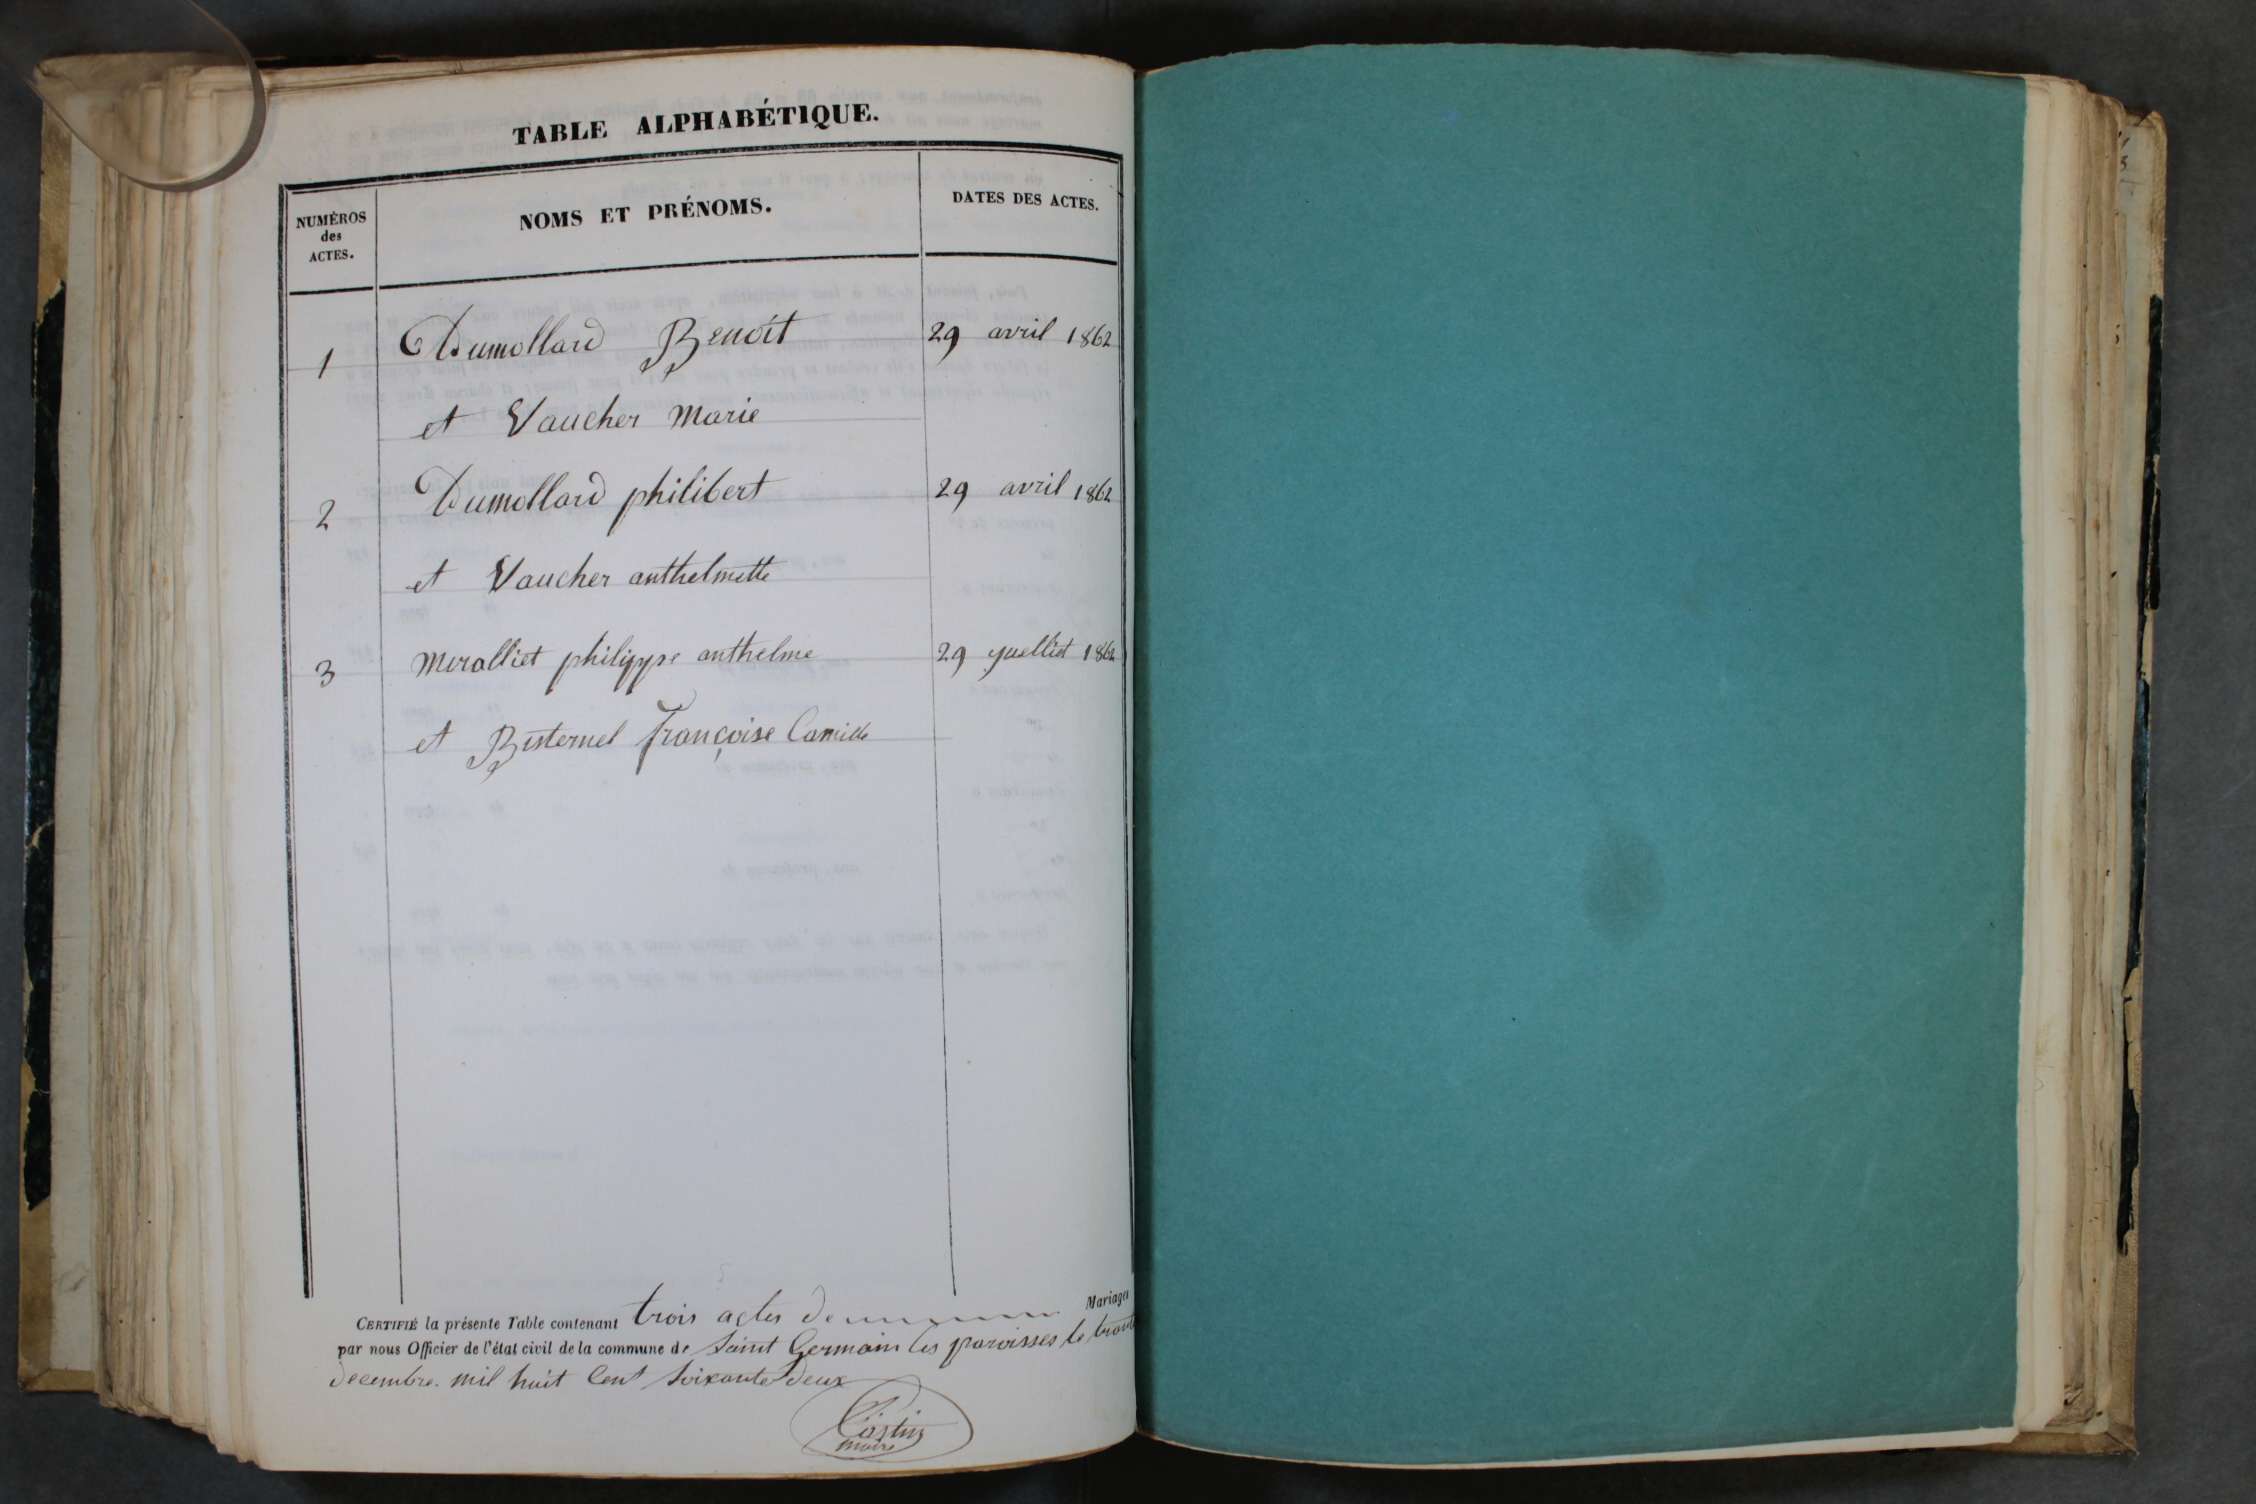 TABLE ALPHABÉTIQUE.
NUMÉROS des ACTES.
NOMS ET PRÉNOMS.
DATES DES ACTES.
1 Dumollard Benoît 29 avril 1862
et Vaucher Marie
2 Dumollard philibert 29 avril 1862
et Vaucher anthelmette
3 Moralliet philippe anthelme 29 juilliet 1862
et Bisternel Françoise Camille
CERTIFIÉ la présente Table contenant trois actes de Mariages
par nous Officier de l'état civil de la commune de Saint Germain les paroisses le trente
decembre mil huit cent soixante deux
maire